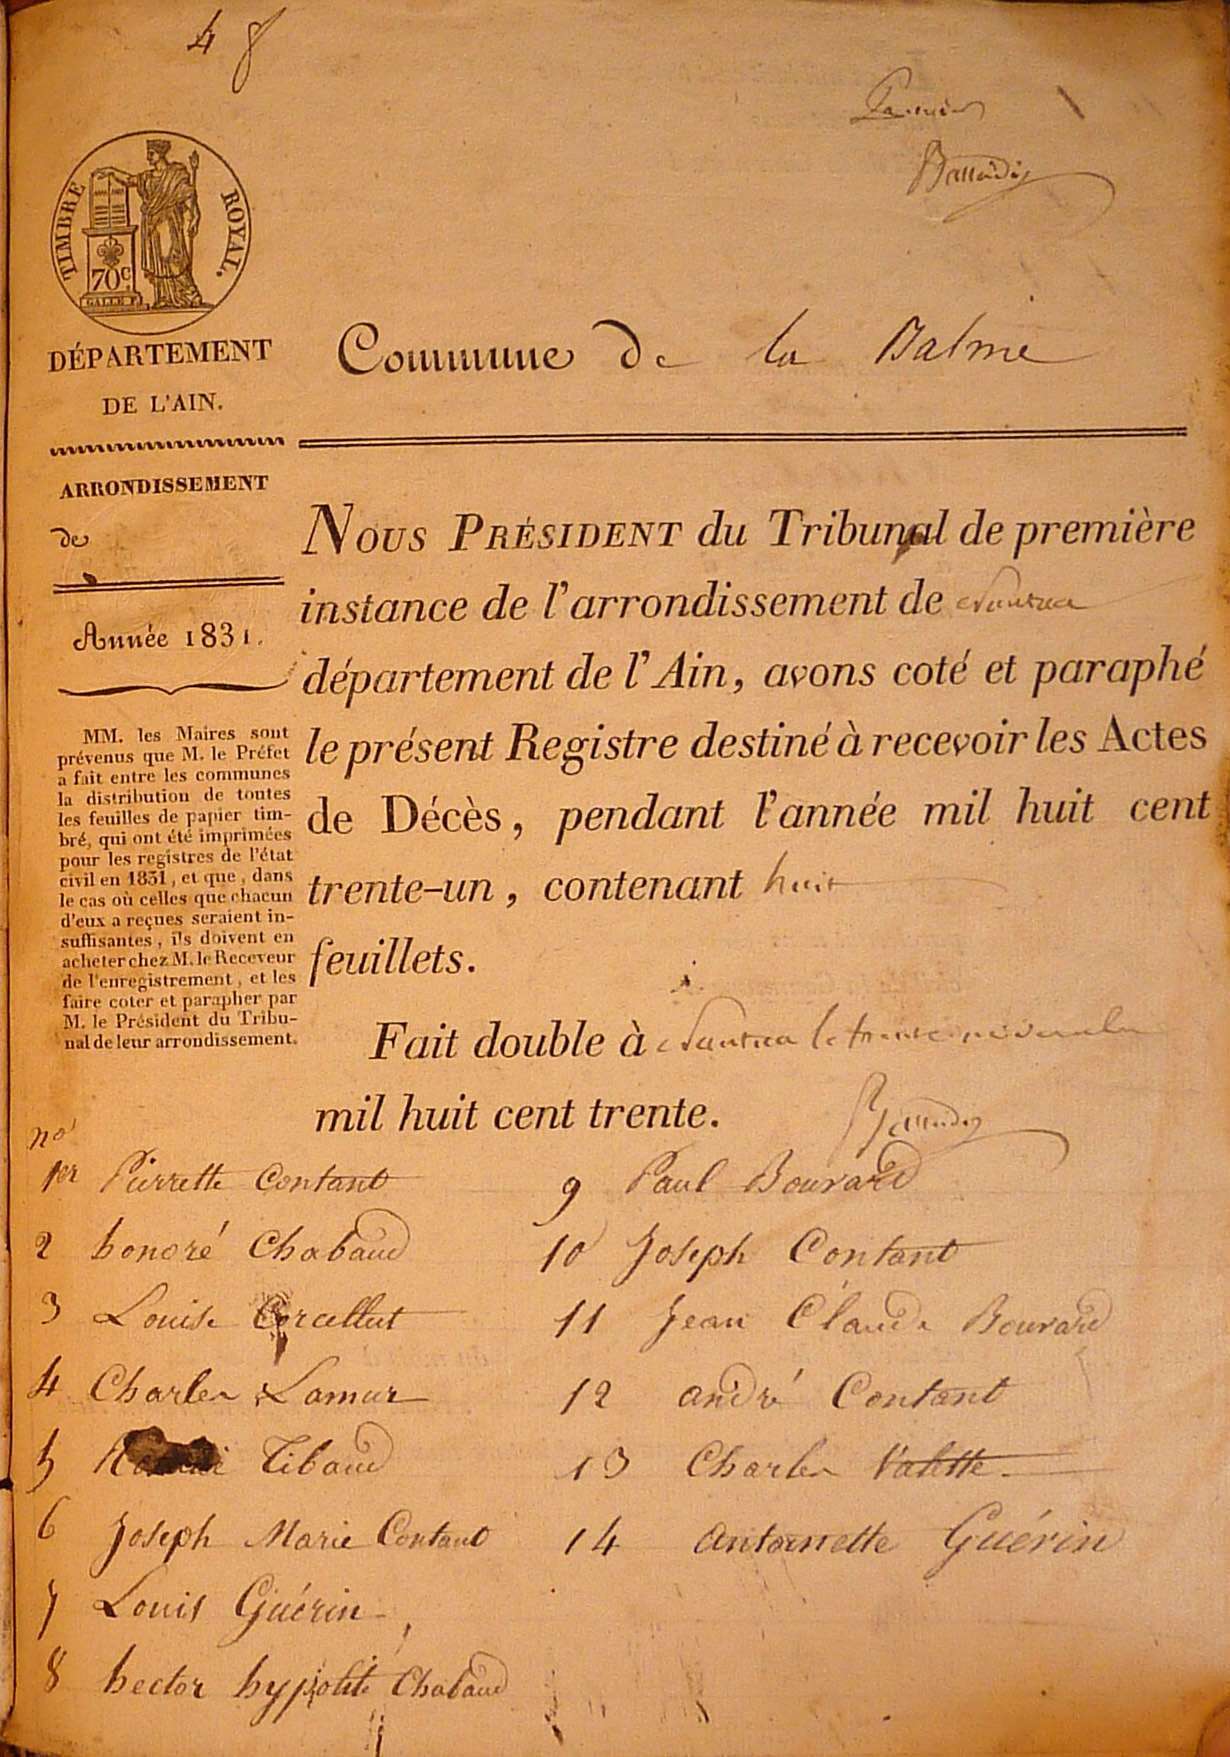 48
TIMBRE ROYAL.
70c.
GALLE F.
DÉPARTEMENT
DE L'AIN.
Commune de la Balme
ARRONDISSEMENT
de
Année 1831.
MM. les Maires sont
prévenus que M. le Préfet
a fait entre les communes
la distribution de toutes
les feuilles de papier tim-
bré, qui ont été imprimées
pour les registres de l'état
civil en 1831, et que, dans
le cas où celles que chacun
d'eux a reçues seraient in-
suffisantes, ils doivent en
acheter chez M. le Receveur
de l'enregistrement, et les
faire coter et parapher par
M. le Président du Tribu-
nal de leur arrondissement.
NOUS PRÉSIDENT du Tribunal de première
instance de l'arrondissement de Nantua
département de l'Ain, avons coté et paraphé
le présent Registre destiné à recevoir les Actes
de Décès, pendant l'année mil huit cent
trente-un, contenant huit
feuillets.
Fait double à Nantua le trente novembre
mil huit cent trente.
nos
1er Pierrette Contant
2 honoré Chabaud
3 Louise
4 Charles Lamur
5 Tibaud
6 Joseph Marie Contant
7 Louis Guérin
8 hector hypolite Chabaud
9 Paul Bouvard
10 Joseph Contant
11 Jean Claude Bouvard
12 andré Contant
13 Charles Valette
14 antoinette Guérin